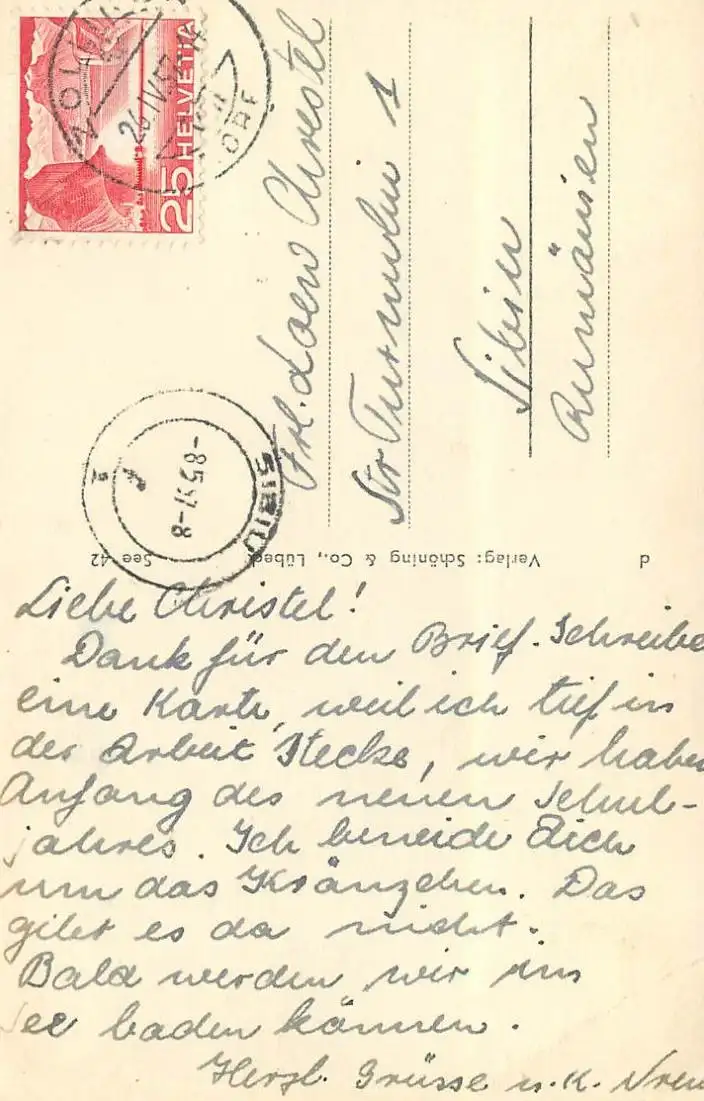 HELVETIA
25
26.IV.57
Frl. Loew Christel
Str Turnului 1
Sibiu
Rumänien
SIBIU
-8 5 57-8
d Verlag: Schöning & Co., Lübeck See 42
Liebe Christel!
Dank für den Brief. Schreibe
eine Karte, weil ich tief in
der Arbeit stecke, wir haben
Anfang des neuen Schul-
jahres. Ich beneide dich
um das Kränzchen. Das
gibt es da nicht.
Bald werden wir im
See baden können.
Herzl. Grüsse u. K. Vren